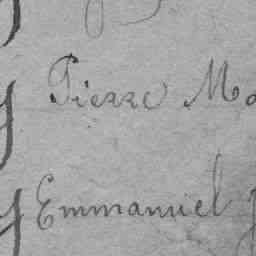 Pierre Ma
Emmanuel